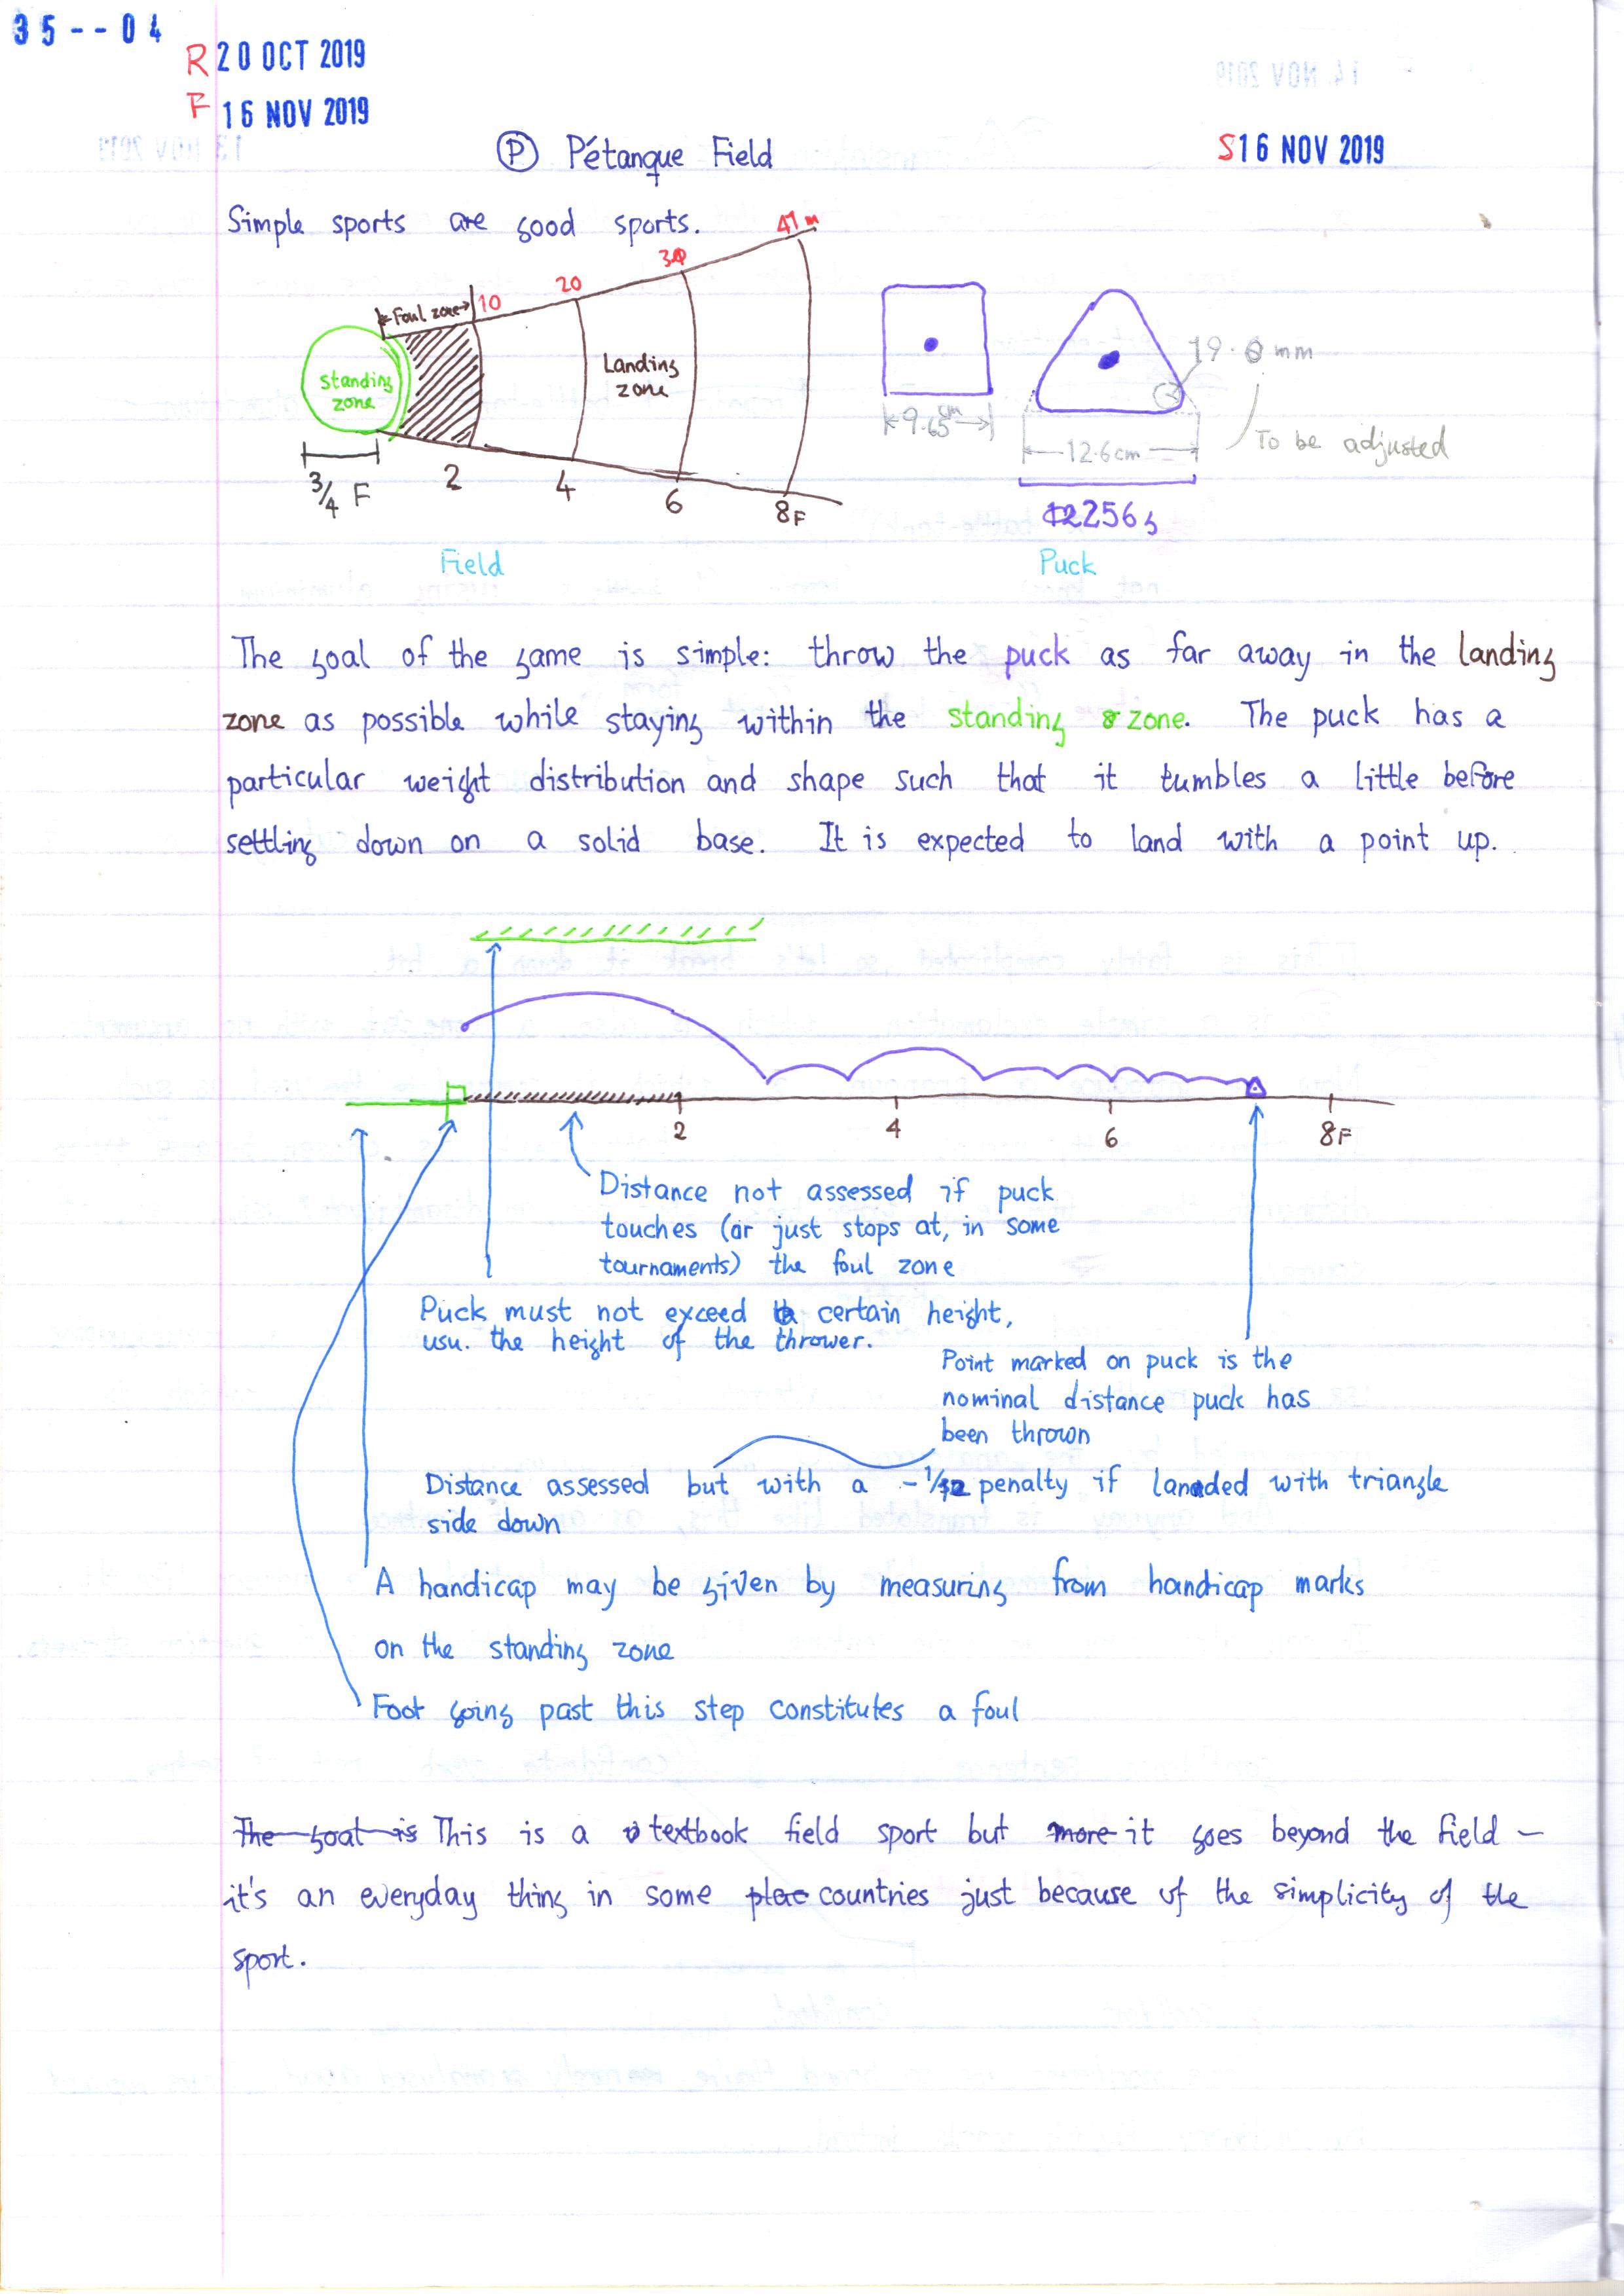 35--04
R 20 OCT 2019
F 16 NOV 2019
S 16 NOV 2019
Ⓟ Pétanque Field
Simple sports are good sports.
Foul zone
10
20
30
41 m
Standing
zone
Landing
zone
3/4 F
2
4
6
8F
Field
9.65 cm
19.0 mm
12.6cm
To be adjusted
2256g
Puck
The goal of the game is simple: throw the puck as far away in the landing
zone as possible while staying within the standing zone. The puck has a
particular weight distribution and shape such that it tumbles a little before
settling down on a solid base. It is expected to land with a point up.
2
4
6
8F
Distance not assessed if puck
touches (or just stops at, in some
tournaments) the foul zone
Puck must not exceed a certain height,
usu. the height of the thrower.
Point marked on puck is the
nominal distance puck has
been thrown
Distance assessed but with a penalty if landed with triangle
side down
A handicap may be given by measuring from handicap marks
on the standing zone
Foot going past this step constitutes a foul
The goal is This is a textbook field sport but more it goes beyond the field –
it's an everyday thing in some place countries just because of the simplicity of the
sport.